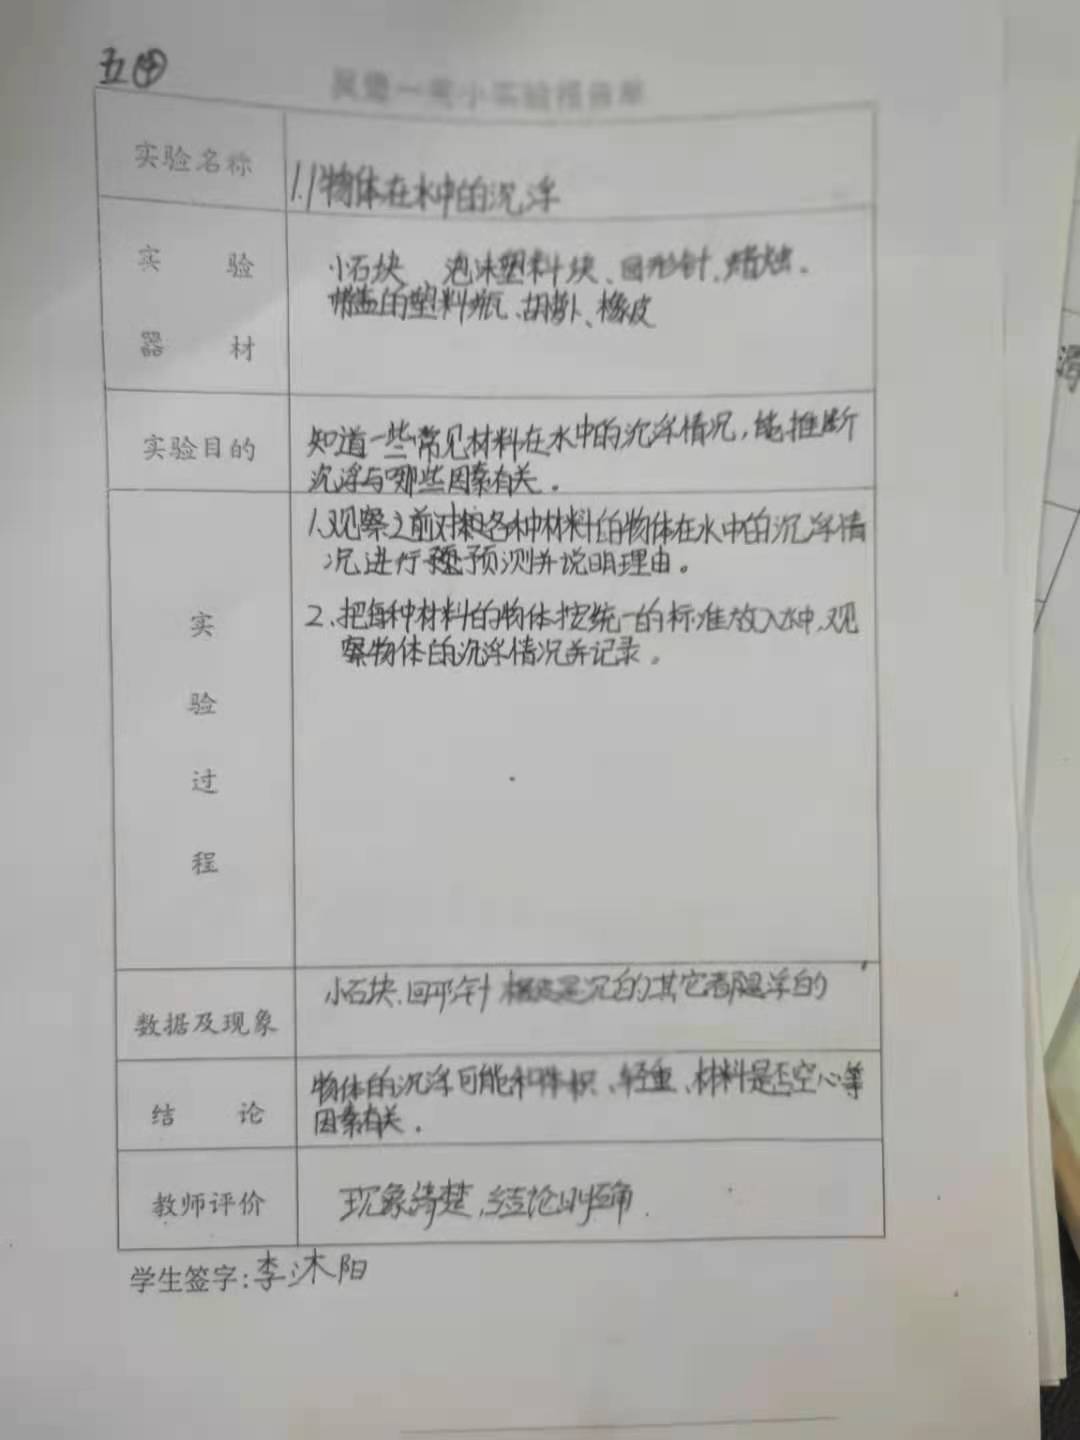 五④
实验名称
1.1物体在水中的沉浮
实验
器材
小石块、泡沫塑料块、回形针、蜡烛、
带盖的塑料瓶、胡萝卜、橡皮
实验目的
知道一些常见材料在水中的沉浮情况，能推断
沉浮与哪些因素有关。
实
验
过
程
1.观察之前对各种材料的物体在水中的沉浮情
况进行预测并说明理由。
2.把每种材料的物体按统一的标准放入水中,观
察物体的沉浮情况并记录。
数据及现象
小石块、回形针 橡皮是沉的其它都是浮的
结论
物体的沉浮可能和体积、轻重、材料是否空心等
因素有关.
教师评价
现象清楚,结论明确.
学生签字:李沐阳